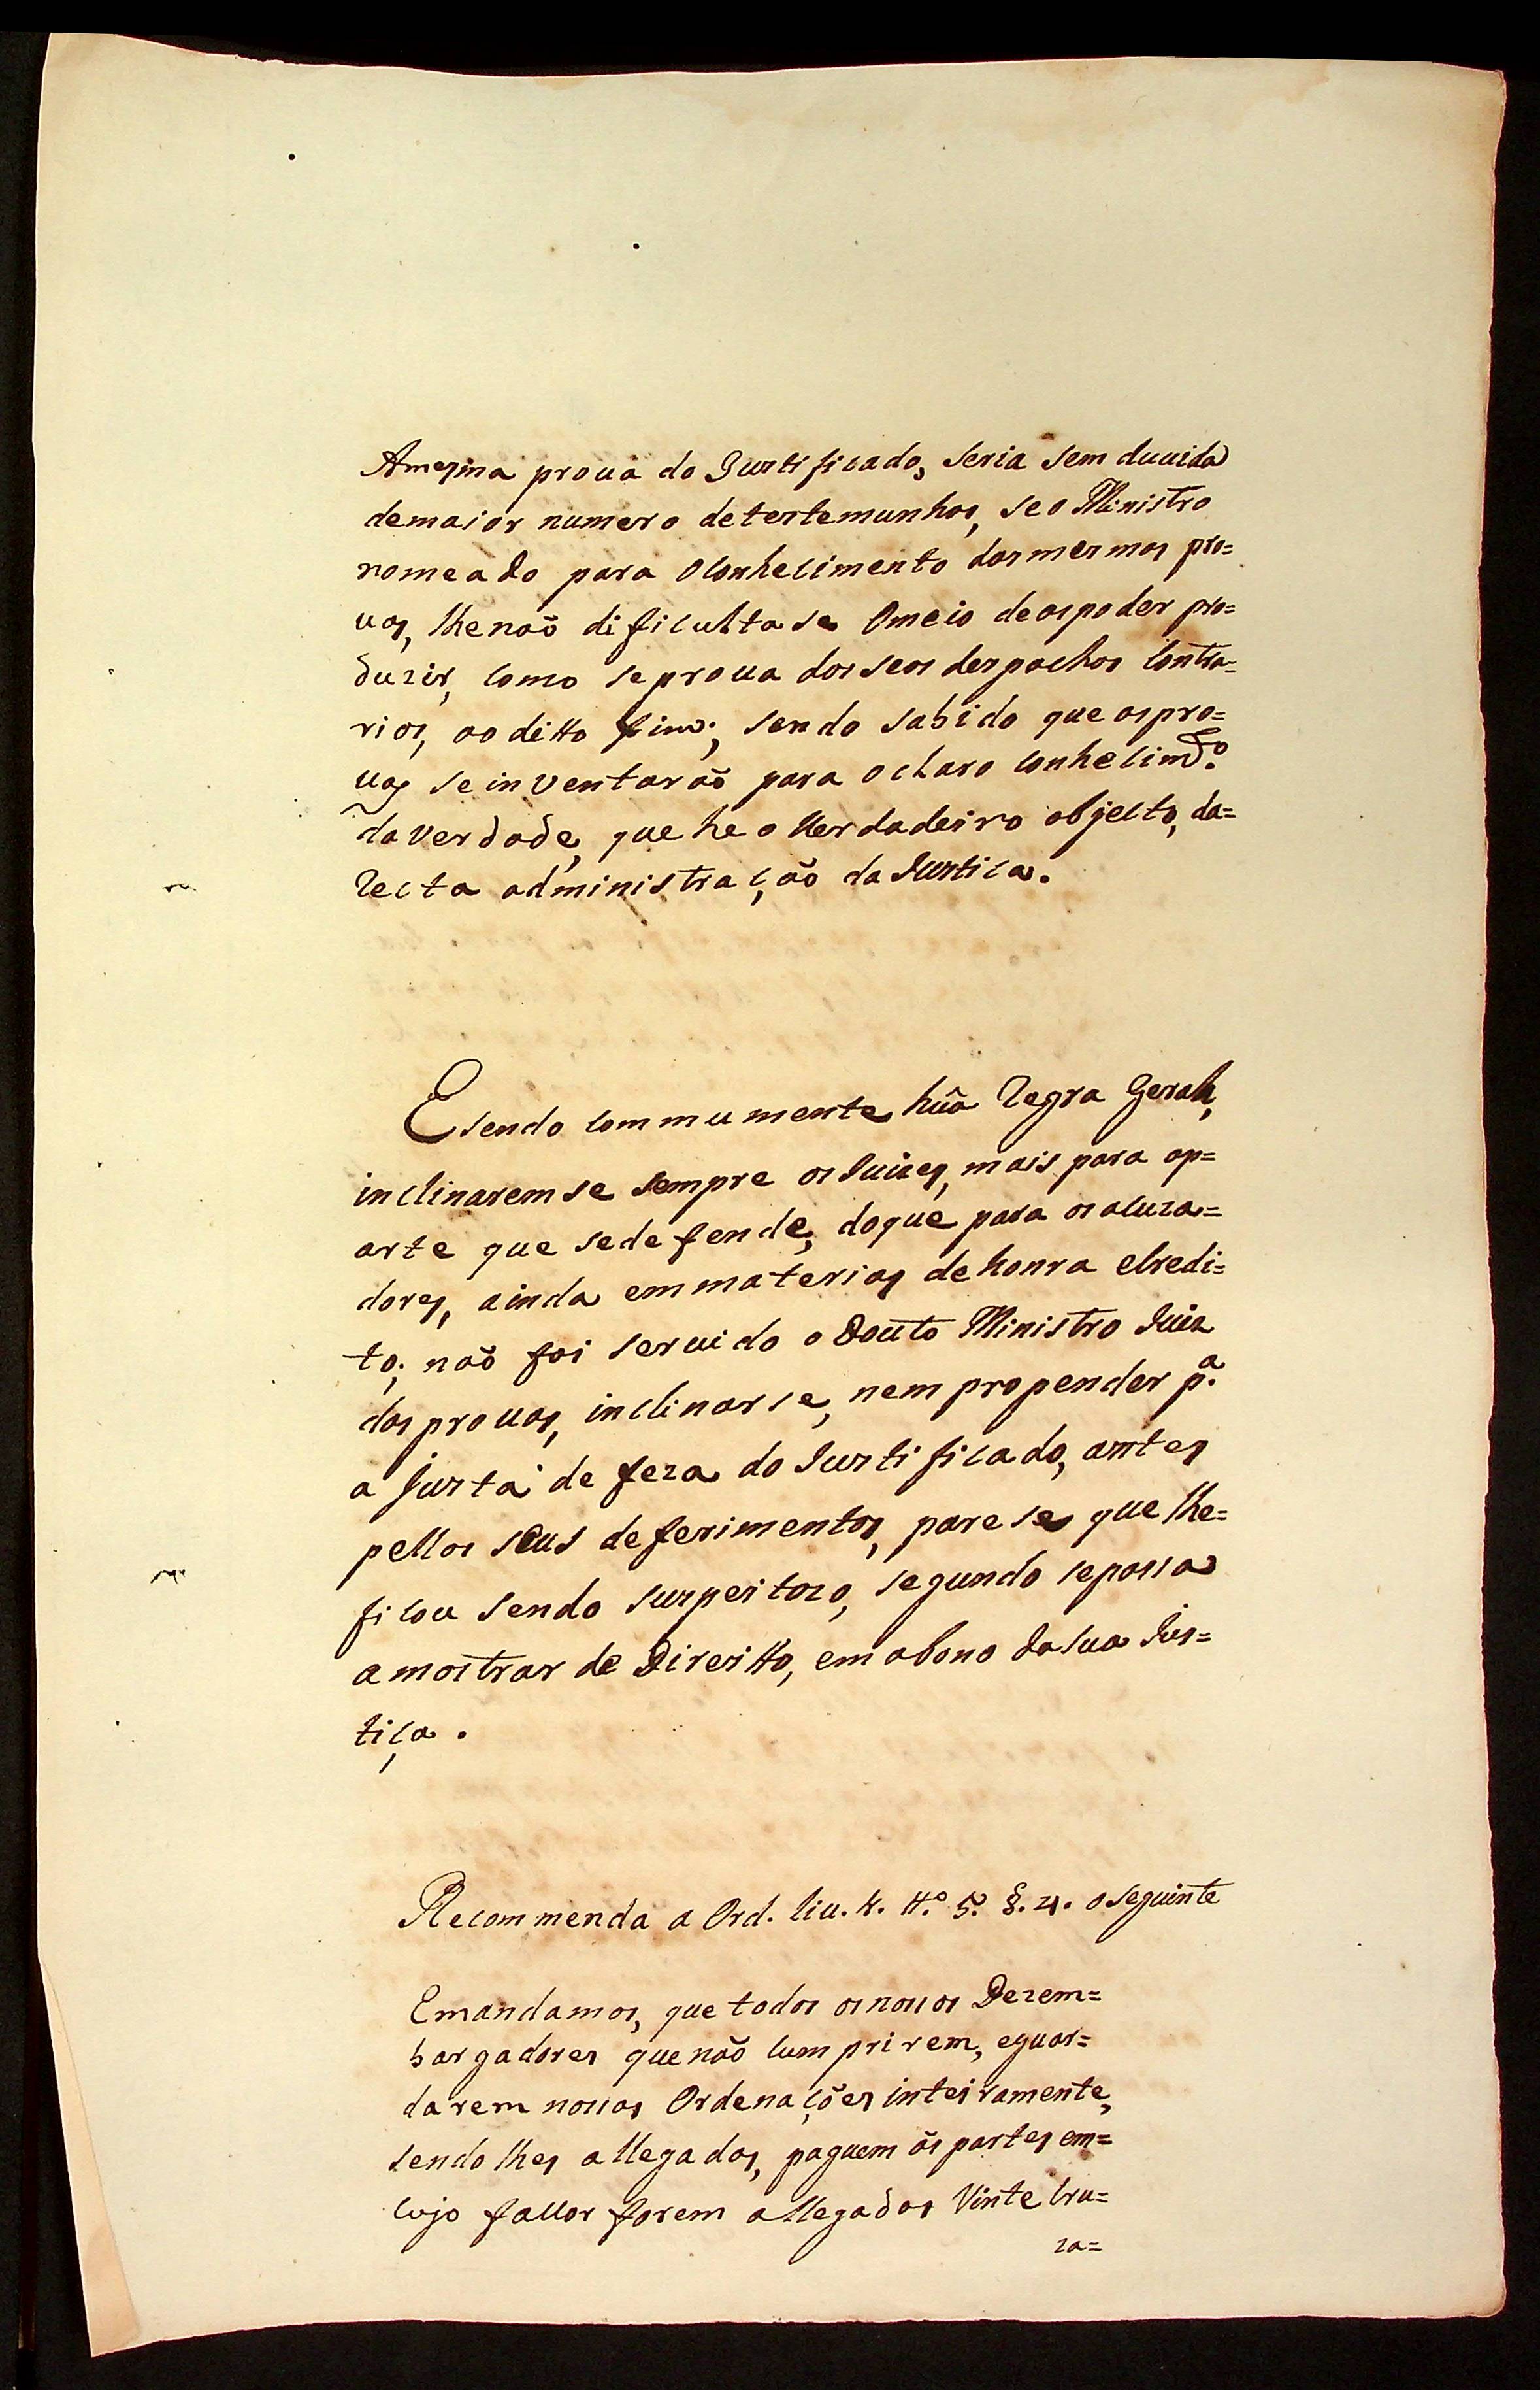 Amesma proua do Justificado, seria sem duuida
demaior numero detestemunhas, seo Ministro
nomeado para oConhecimento dasmesmas pro=
uas, lhenaõ dificultase Omeio deaspoder pro=
duzir, como seproua dos seos despachos Contra=
rios, ao ditto fim; sendo sabido que aspro=
uas se inventaraõ para oclaro conhecimd.º
daverdade, que he o Verdadeiro objecto, da=
recta administração da Justica.
Esendo commumente hũa regra Geral,
inclinaremse sempre os Juizes, mais para ap=
arte que sedefende, doque para osacuza=
dores, ainda emmaterias dehonra eCredi=
to; naõ foi seruido o Douto Ministro Juiz
das prouas, inclinarse, nem propender p.ª
a justa defeza do Justificado, antes
pellos seus deferimentos, parese que lhe=
ficou sendo suspeitozo, segundo sepassa
amostrar de Direitto, em abono dasua Jus=
tiça.
Recommenda a Ord. liu. 1. tt.º 5.º §. 4. oseguinte
Emandamos, que todos osnossos Dezem=
bargadores quenaõ cumprirem, eguar=
darem nossas Ordenações inteiramente,
sendolhes allegadas, paguem ás partes em=
cujo fauor forem allegadas Vinte Cru=
za=